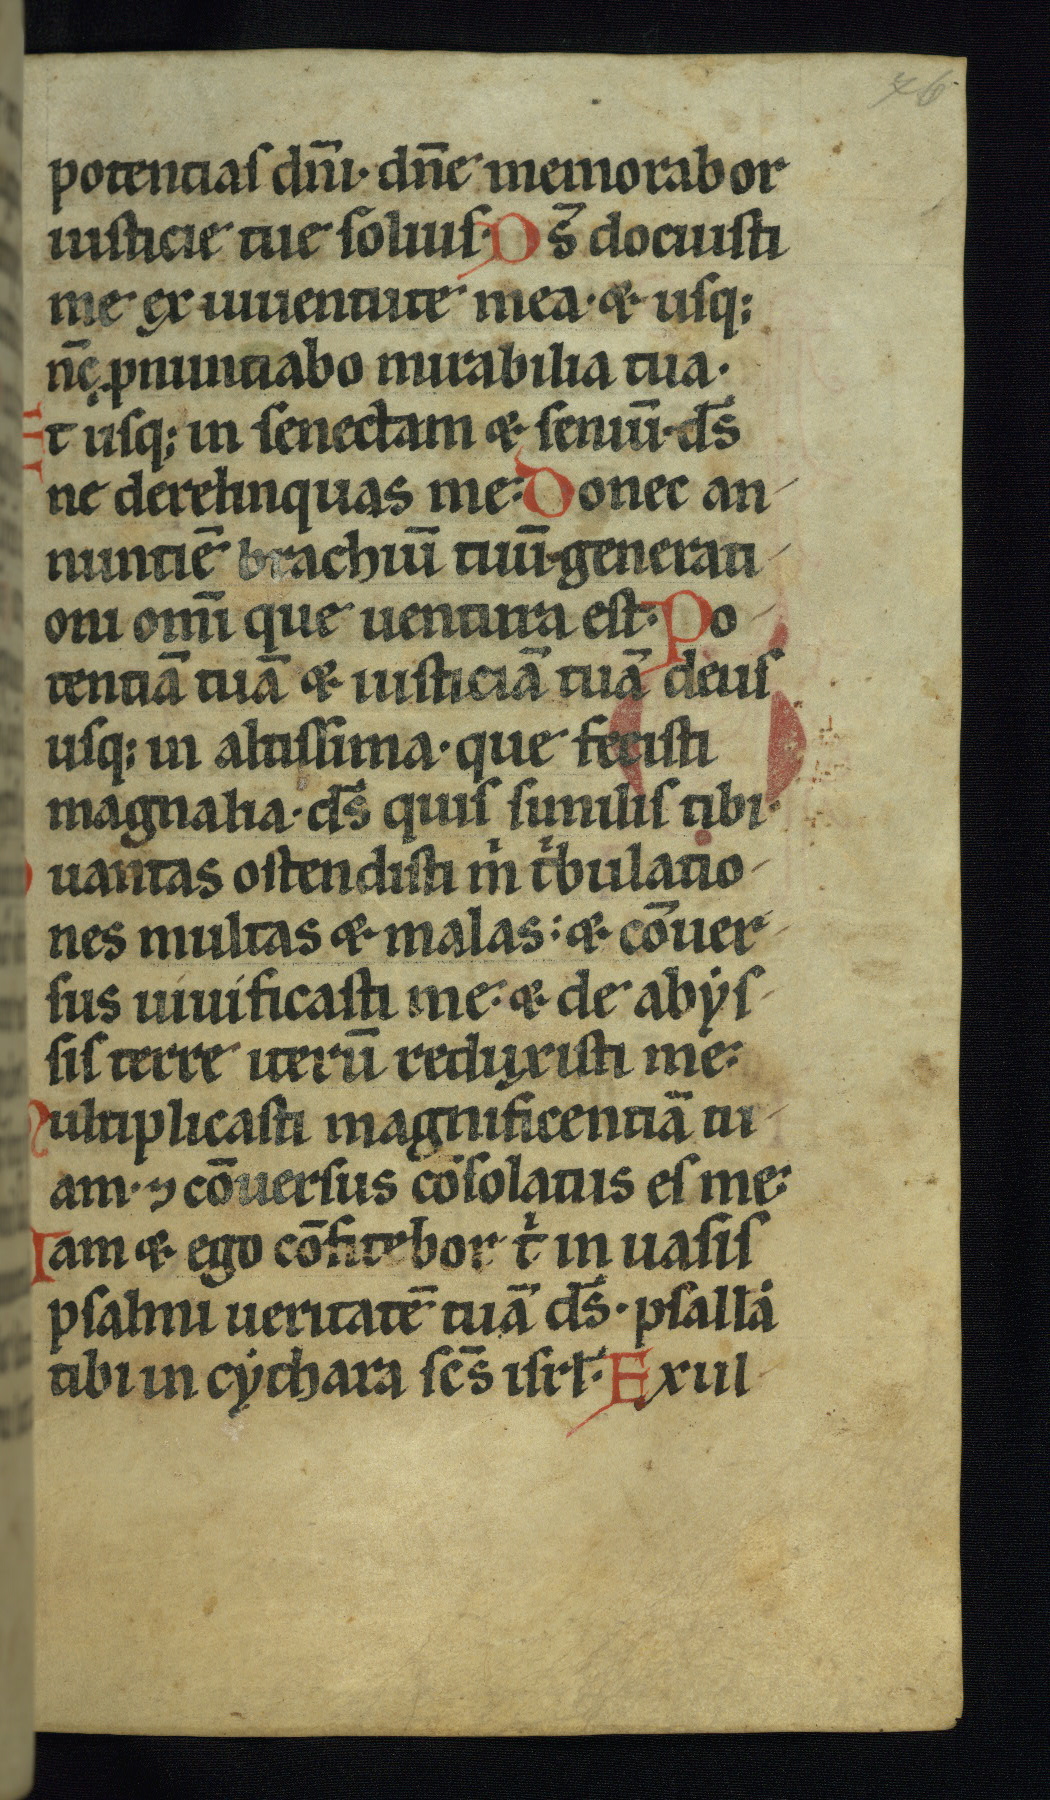 76
potentias dn̄i· dn̄e memorabor
iusticie tue solius· Ds̄ docuisti
me ex iuuentute mea· & usq;
nc̄ pnuntiabo mirabilia tua·
Et usq; in senectam & seniū· ds̄
ne derelinquas me· Donec an
nuntiē brachiū tuū· generati
oni om̄i que uentura est· Po
tentiā tuā & iusticiā tuā deus
usq; in altissima· que fecisti
magnalia· ds̄ quis similis tibi·
uantas ostendisti m̍ t̍bulatio
nes multas & malas: & cōuer
sus uiuificasti me· & de abys
sis terre iterū reduxisti me:
Multiplicasti magnificentiā tu
am· ⁊ cōuersus cōsolatus es me:
Iam & ego cōfitebor t̍ in uasis
psalmi ueritatē tuā ds̄· psallā
tibi in cythara sc̄s isrl̄· Exul